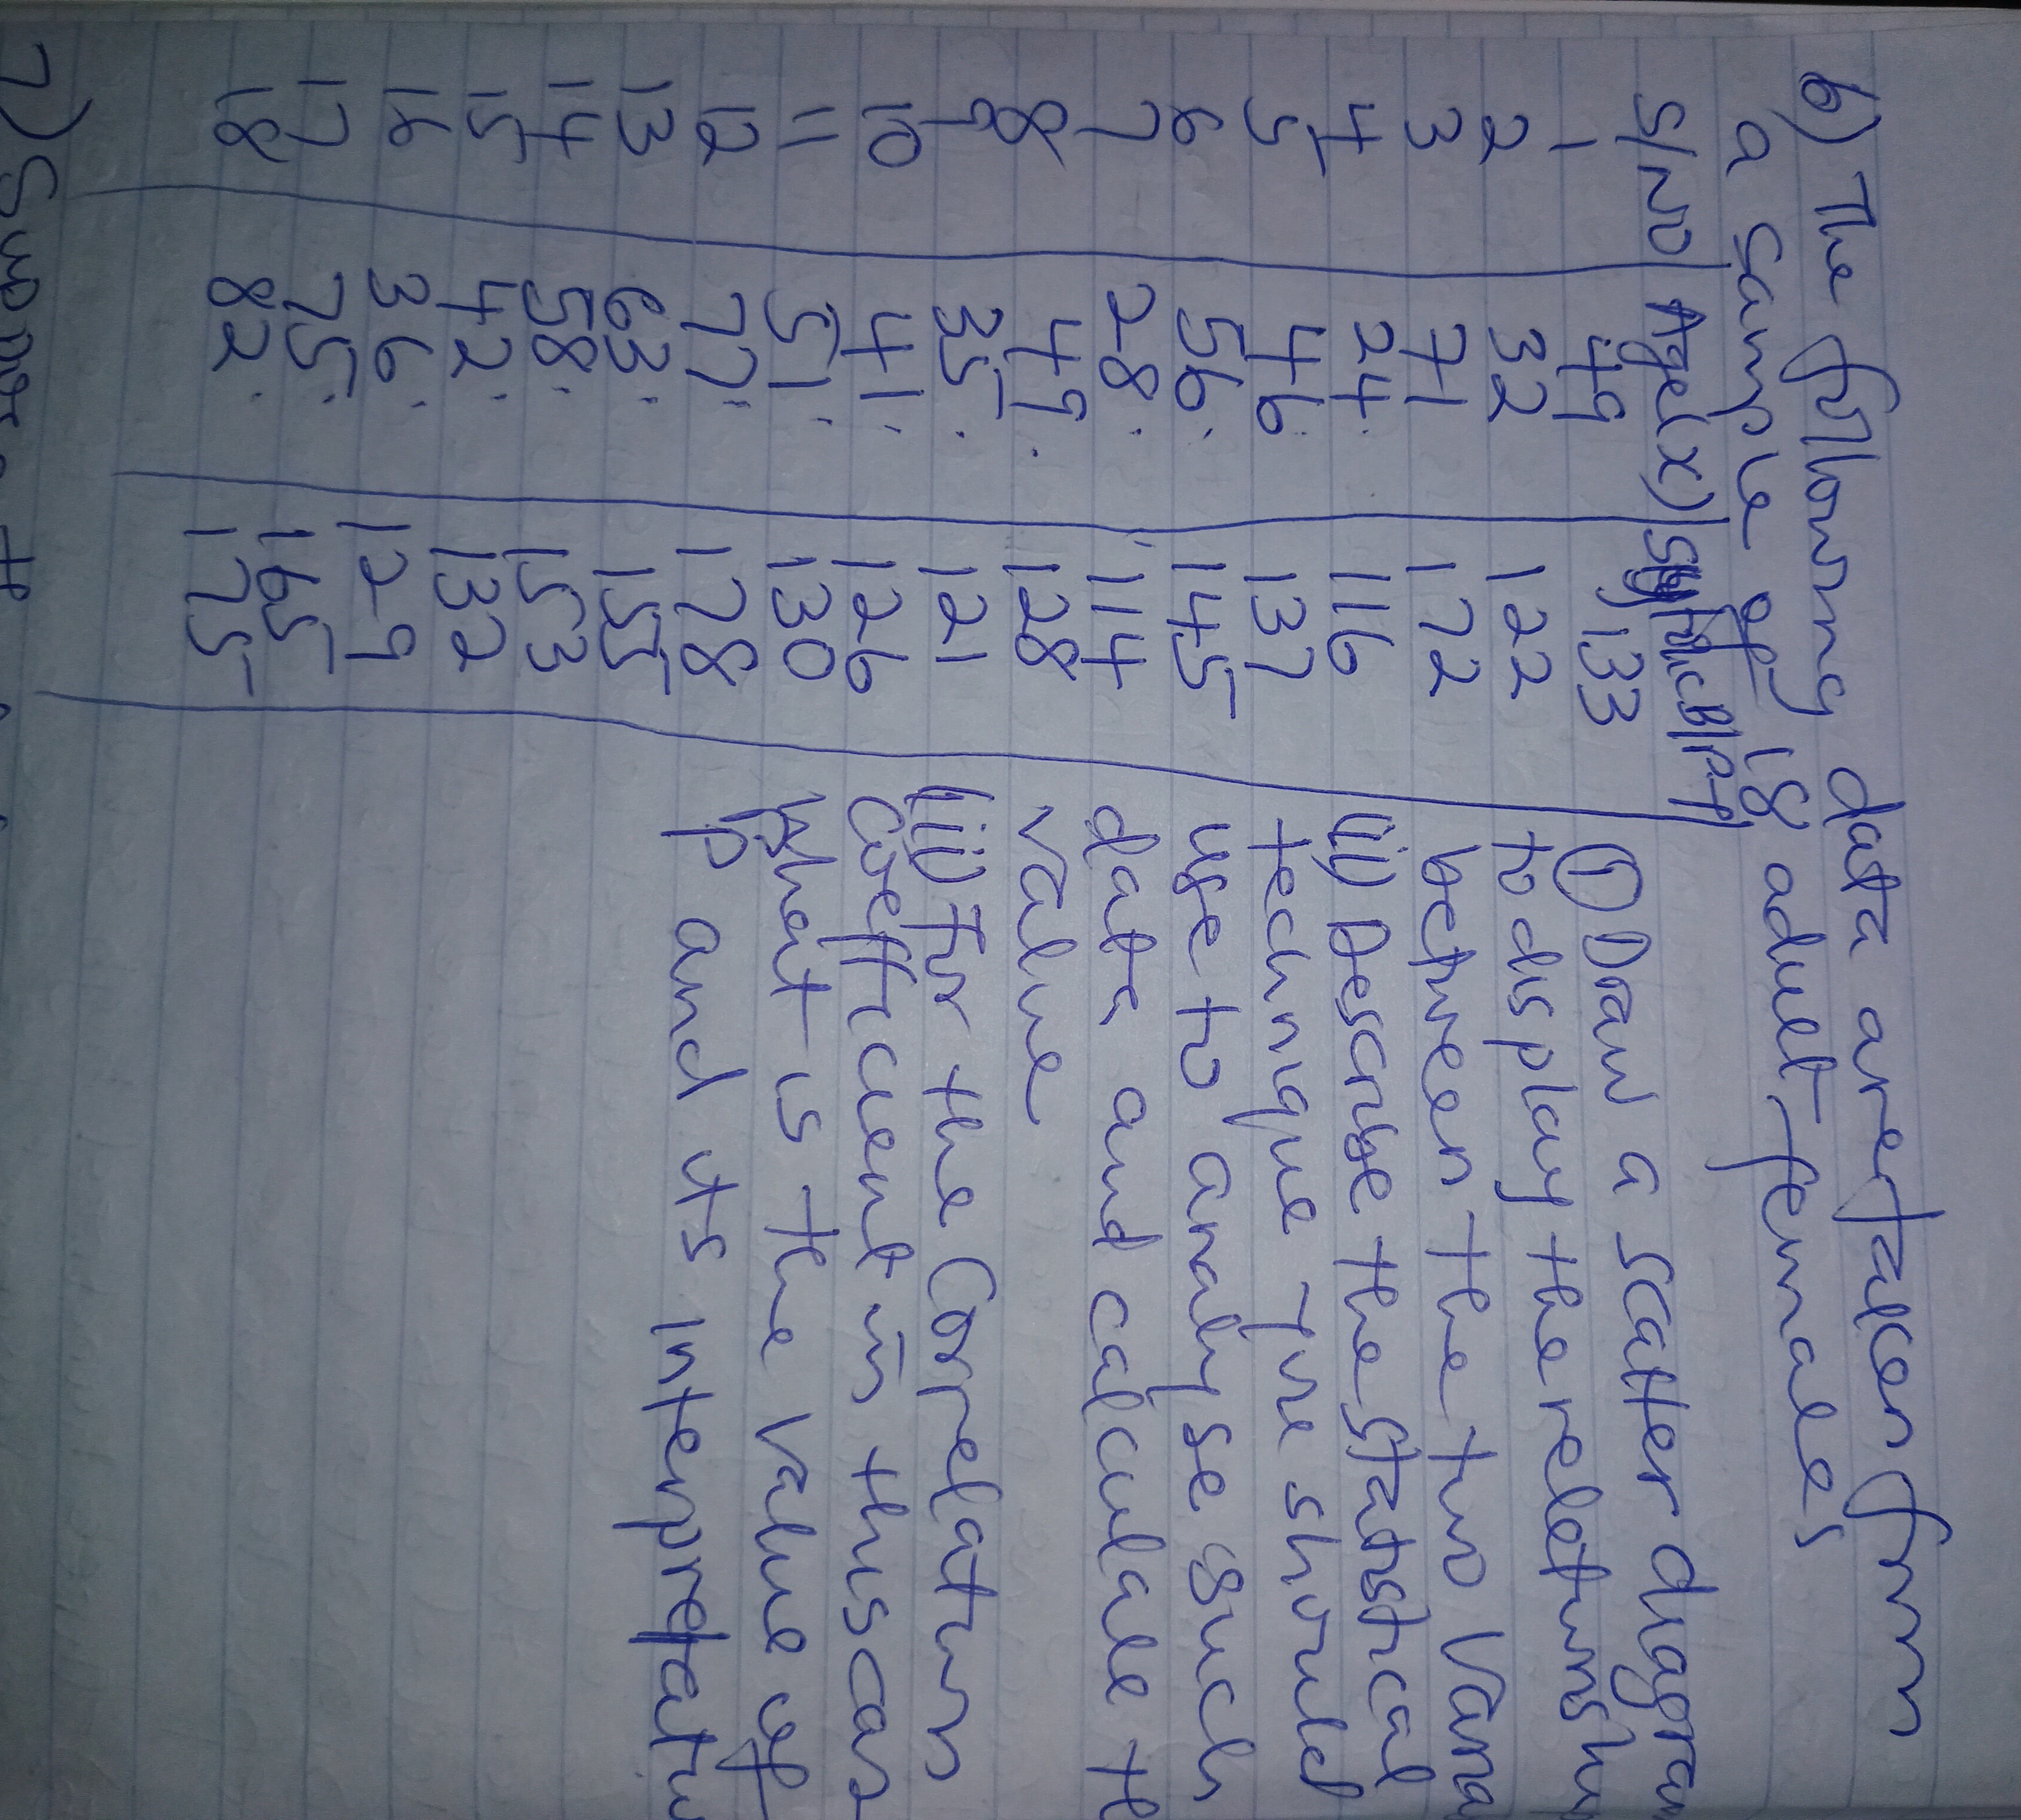 6) The following data are taken from
a sample of 18 adult females
S/No | Age(x) | Systolic B/P(Y)
1 49 133 (i) Draw a scatter diagram
2 32 122 to display the relationship
3 71 172 between the two varia
4 24 116 (ii) Describe the statistical
5 46 137 technique you should
6 56 145 use to analyse such
7 28 114 data and calculate th
8 49 128 value
9 35 121 (iii) For the Correlation
10 41 126 coefficient in this case
11 51 130 What is the value of
12 77 178 p and its interpretatio
13 63 155
14 58 153
15 42 132
16 36 129
17 75 165
18 82 175
7) Suppose th